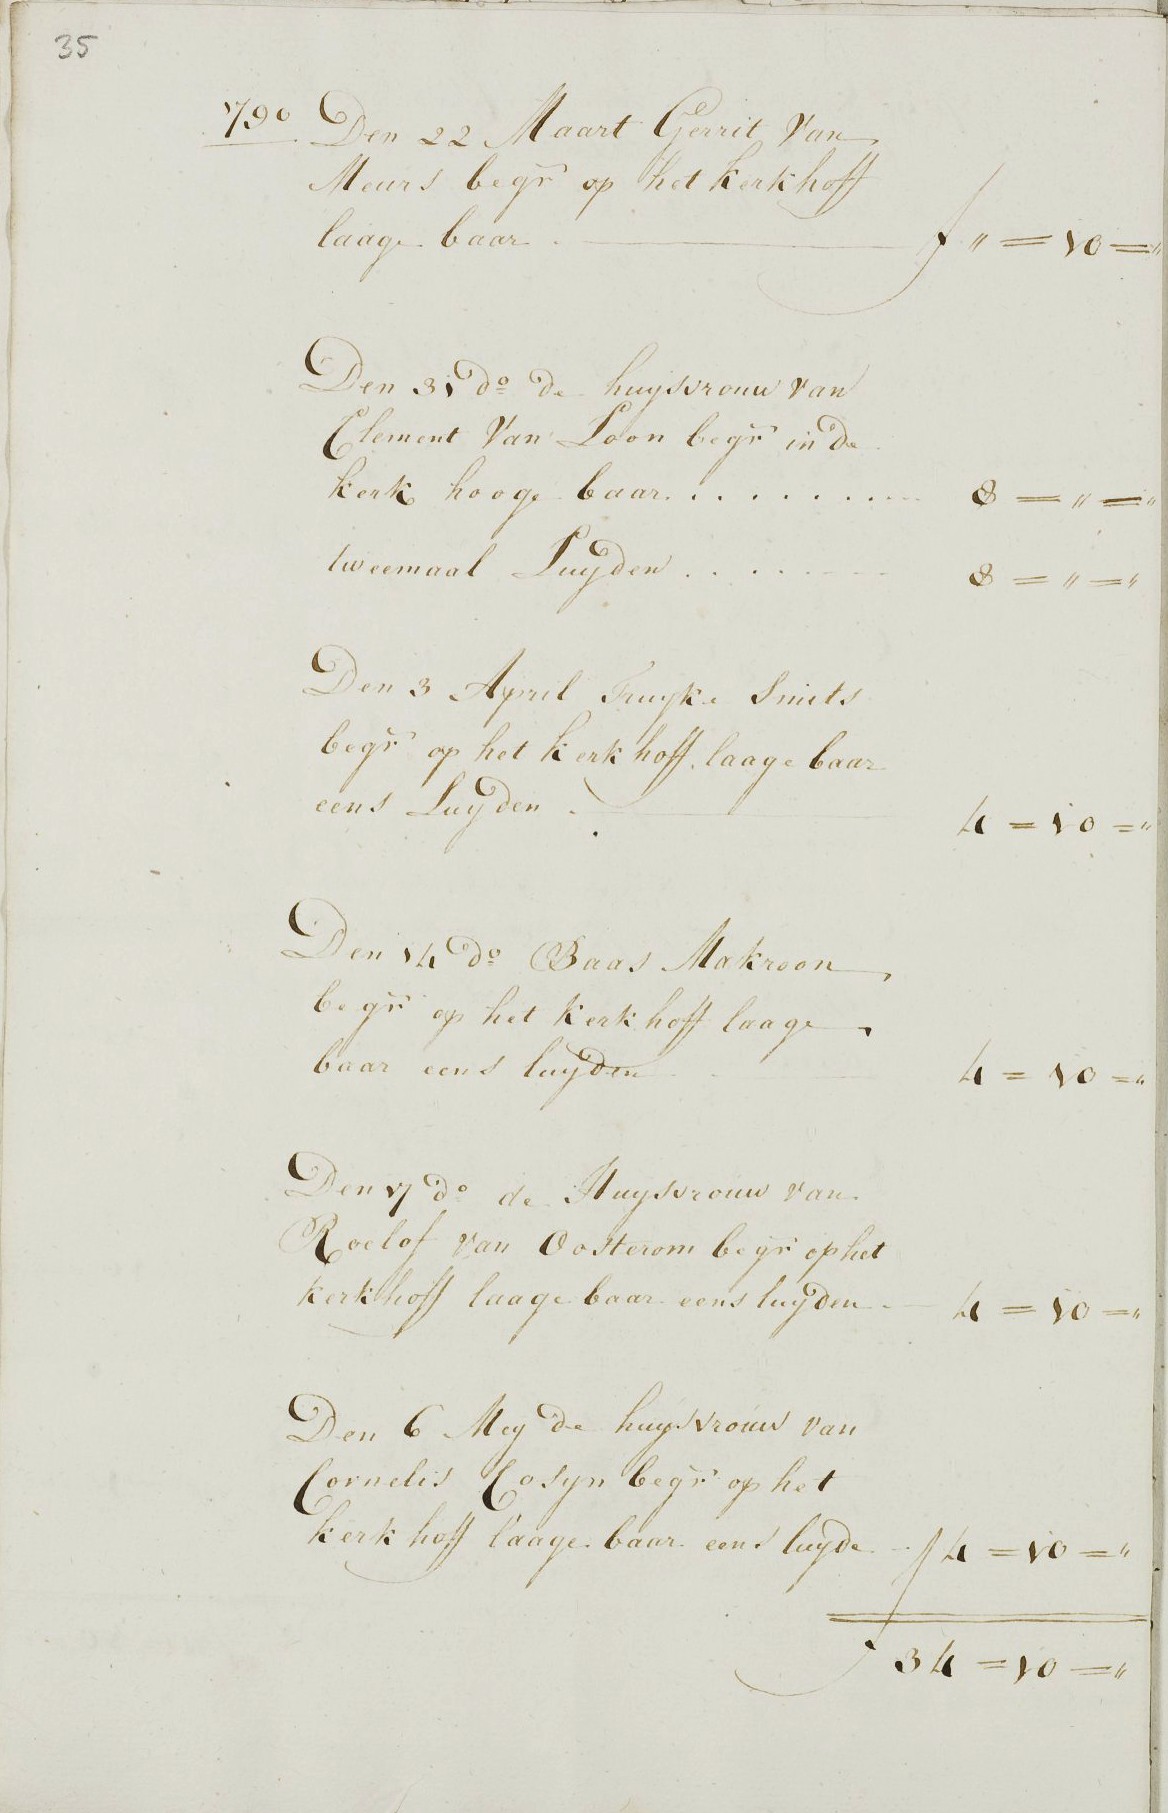 35
1790 Den 22 Maart Gerrit Van
Meurs begr op het kerkhoff
laage baar . — ƒ „ = 10 = „
Den 31 do de huysvrouw van
Clement Van Loon begr in de
kerk hooge baar . . . . . . . . 8 = „ = „
tweemaal Luyden . . . . . . 8 = „ = „
Den 3 April Truyke Smets
begr op het kerkhoff laage baar
eens Luyden . — 4 = 10 = „
Den 14 do Baas Makroon
begr op het kerkhoff laage
baar eens luyden — 4 = 10 = „
Den 17 do de Huysvrouw van
Roelof van Oosterom begr op het
kerkhoff laage baar eens luyden — 4 = 10 = „
Den 6 Mey de huysvrouw van
Cornelis Cosyn begr op het
kerkhoff laage baar eens luyde - ƒ 4 = 10 = „
ƒ 34 = 10 = „